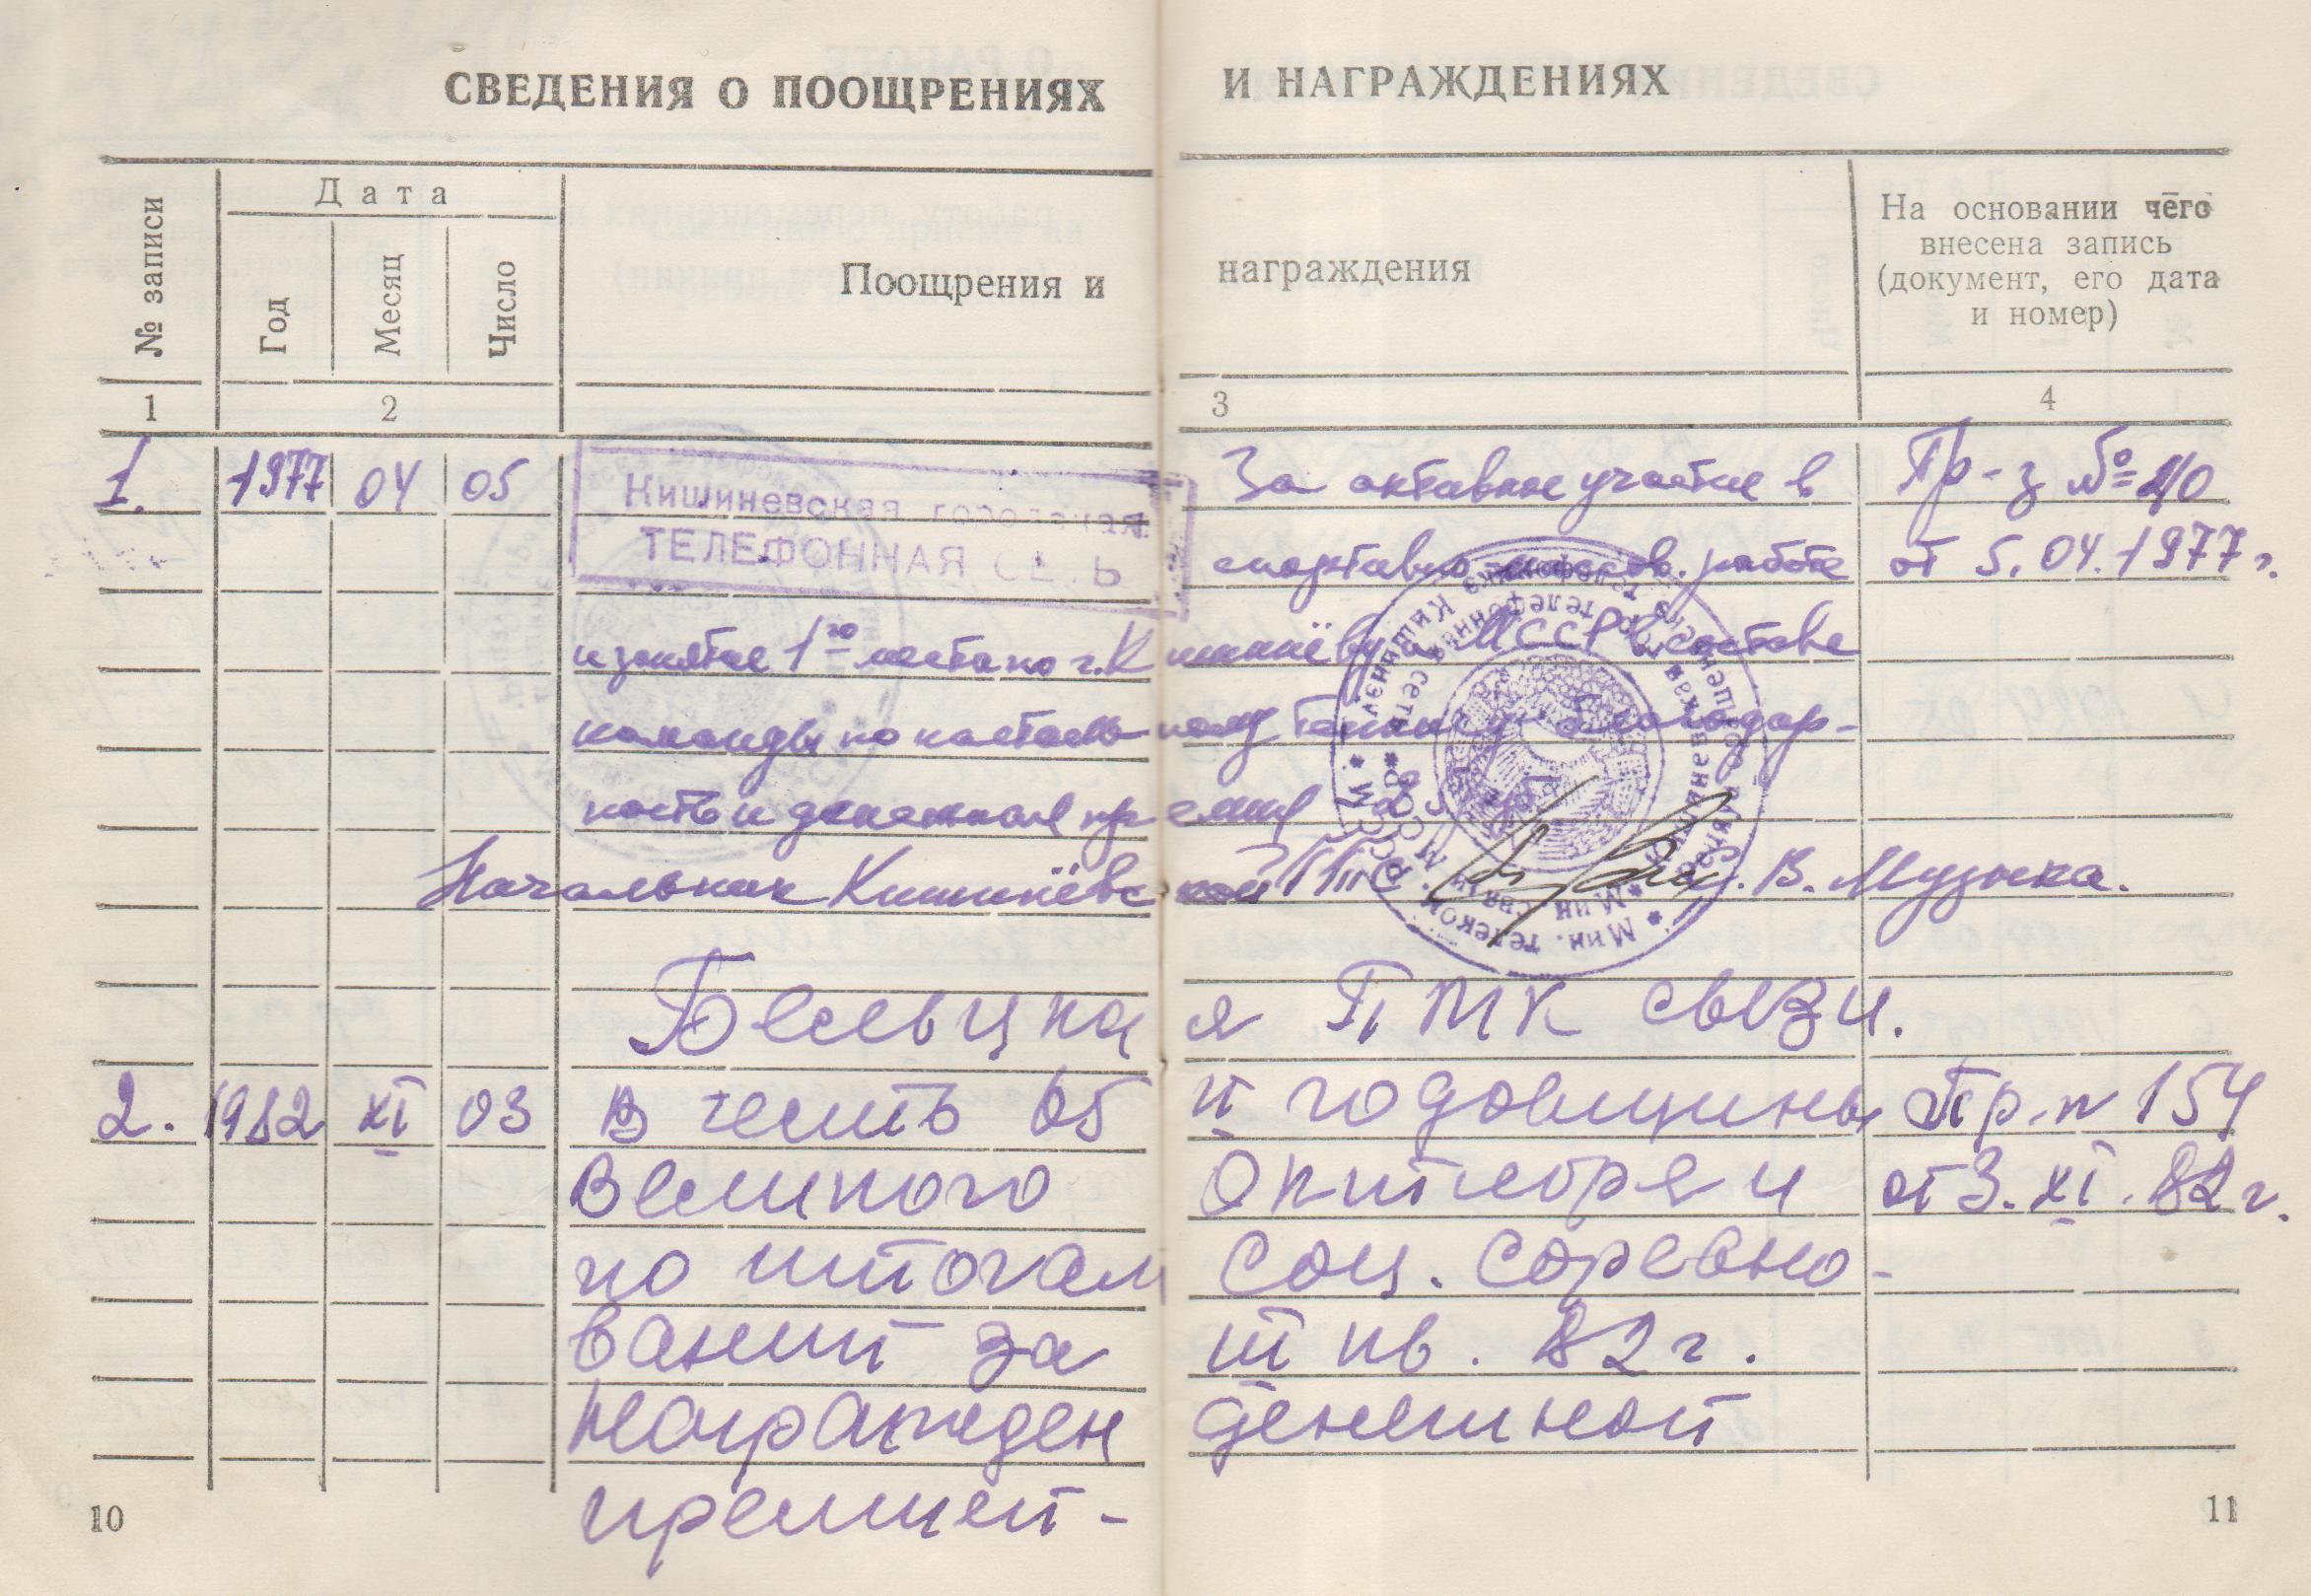 СВЕДЕНИЯ О ПООЩРЕНИЯХ И НАГРАЖДЕНИЯХ
№ записи
Дата
Год
Месяц
Число
Поощрения и награждения
На основании чего
внесена запись
(документ, его дата
и номер)
1 2 3 4
1. 1977 04 05 Кишиневская городская За активное участие в Пр-з №
ТЕЛЕФОННАЯ СЕТЬ спортивно-массов. работе от 5.04.1977 г.
и занятие 1го места по г. Кишинёву и МССР в составе
команды по настольному теннису благодар-
ность и денежная премия
Начальник Кишинёвской ГТС В. Музыка.
Бельцкая ПМК связи.
2. 1982 XI 03 В честь 65й годовщины Пр. н 154
Великого Октября и от 3.XI.82 г.
по итогам соц. соревно-
ваний за III кв. 82 г.
награжден денежной
премией -
10
11